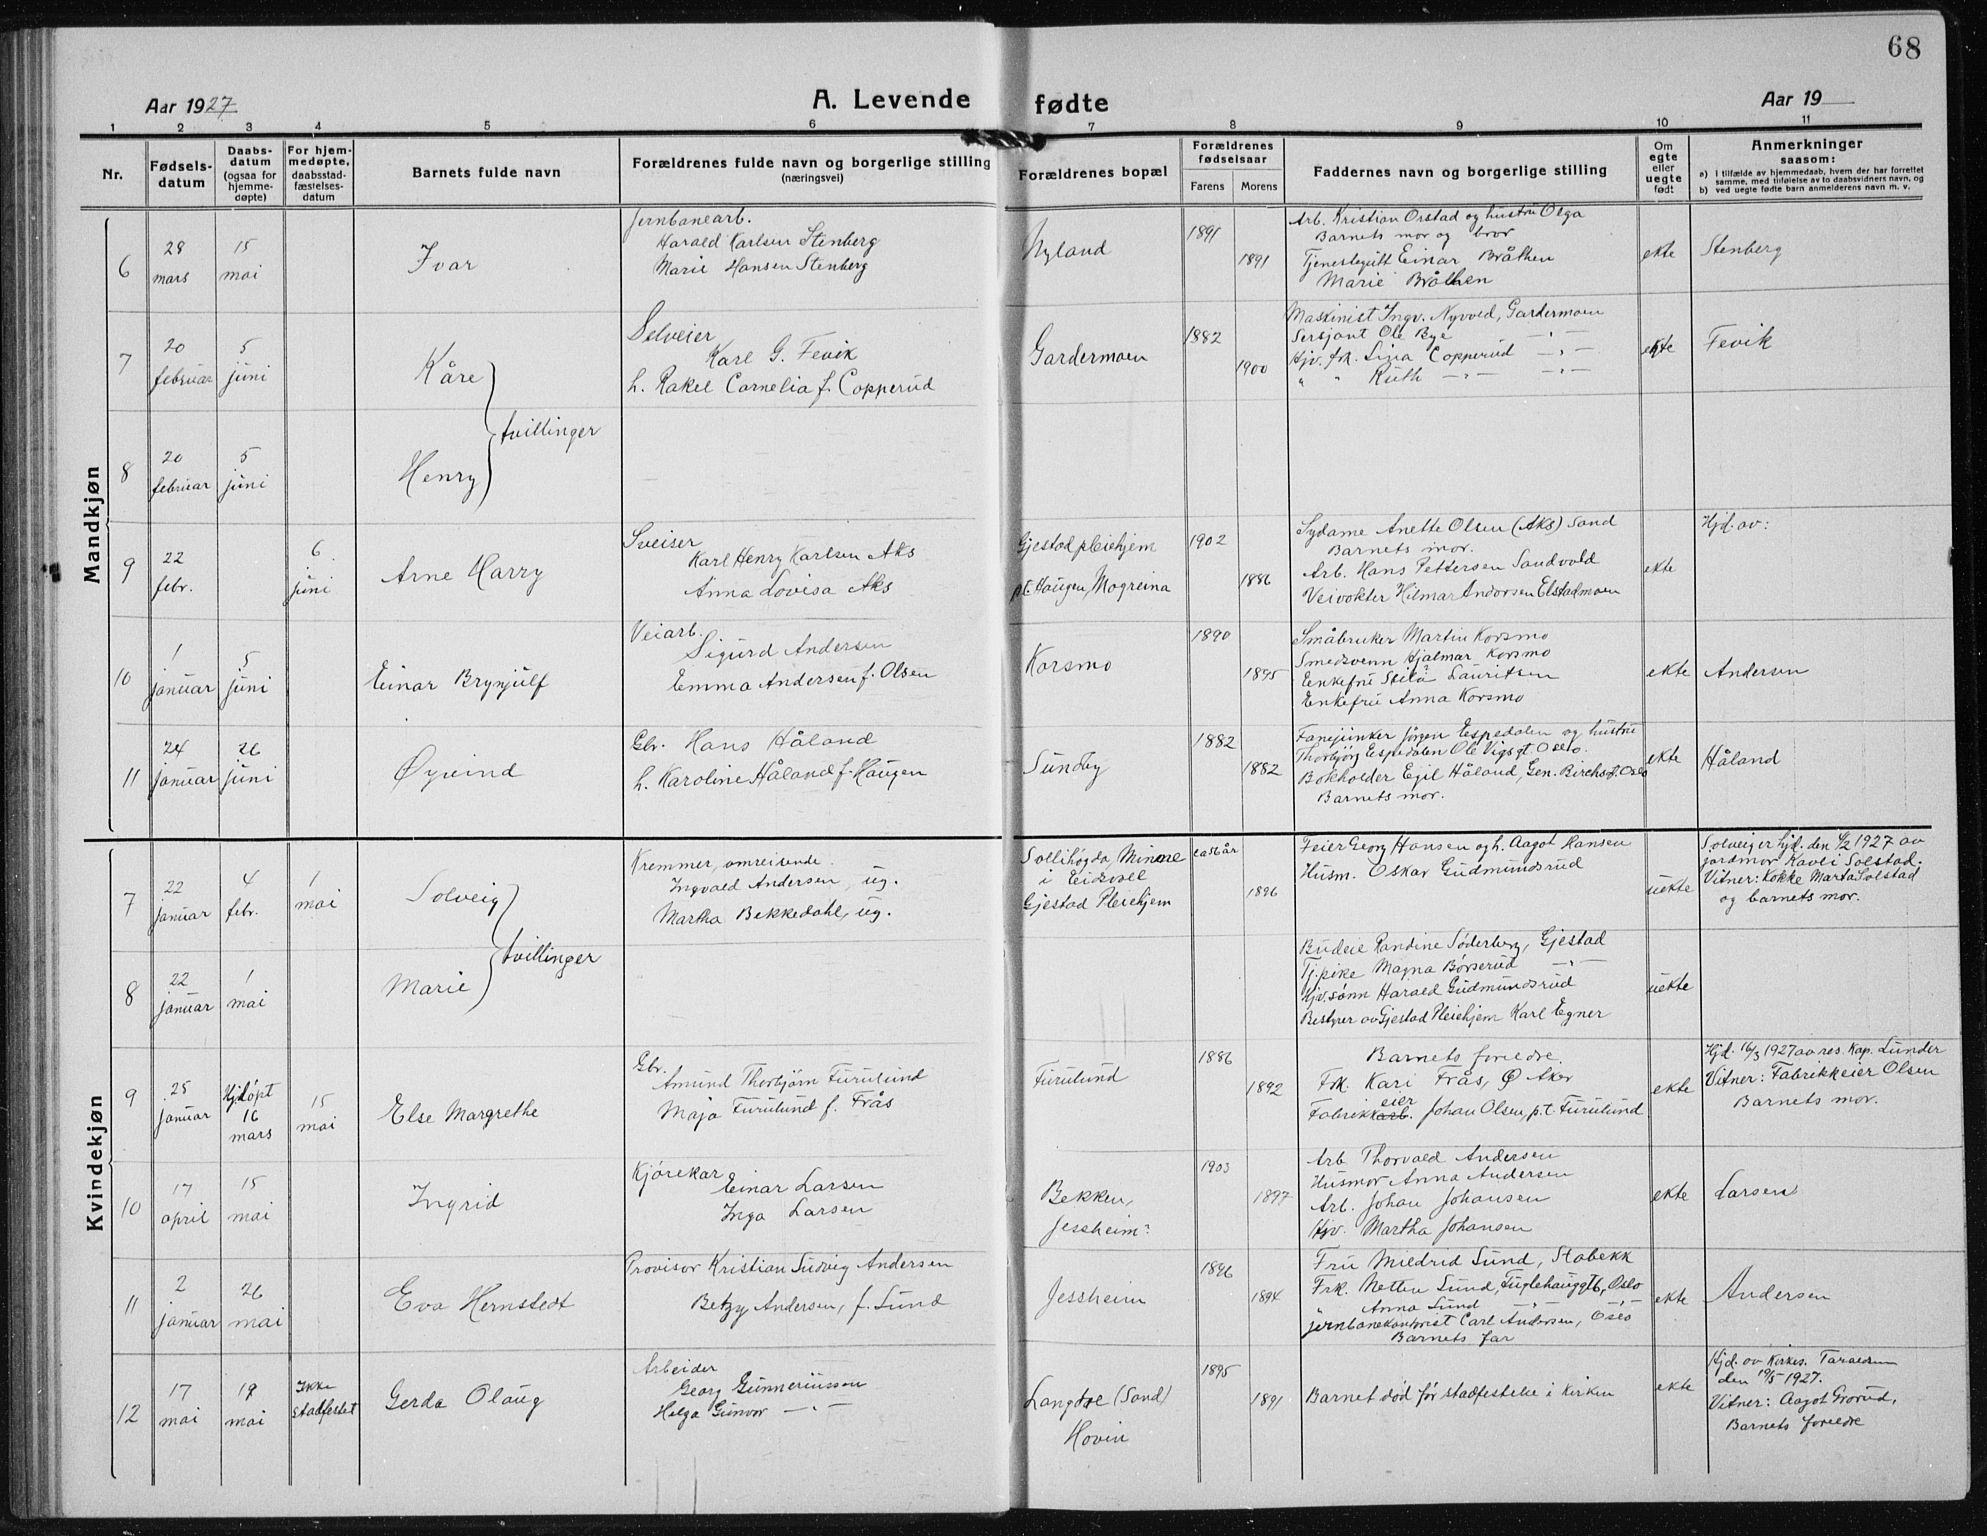 68
Aar 1927
A. Levende fødte
Aar 19
1 2 3 4 5 6 7 8 9 10 11
Nr.
Fødsels-datum
Daabs-datum (ogsaa for hjemme-døpte)
For hjem-medøpte, daabsstad-fæstelses-datum
Barnets fulde navn
Forældrenes fulde navn og borgerlige stilling (næringsvei)
Forældrenes bopæl
Forældrenes fødselsaar
Farens Morens
Faddernes navn og borgerlige stilling
Om egte eller uegte født
Anmerkninger saasom:
a) i tilfælde av hjemmedaab, hvem der har forrettet samme, med tilføielse av to daabsvidners navn, og
b) ved uegte fødte barn anmelderens navn m. v.
Mandkjøn
6
28 mars
15 mai
Ivar
Jernbanearb.
Harald Karlsen Stenberg
Marie Hansen Stenberg
Nyland
1891
1891
Arb. Kristian Orstad og hustru Olga
Barnets mor og bror
Tjenestegutt Einar Bråthen
Marie Bråthen
ekte
Stenberg
7
20 februar
5 juni
Kåre
Selveier
Karl G. Fevik
h. Rakel Cornelia f. Copperud
Gardermoen
1882
1900
Maskinist Ingv. Nyvold, Gardermoen
Sersjant Ole Bye -"-
Hjv. frk. Lina Copperud -"-
" " Ruth -"- -"-
ekte
Fevik
tvillinger
8
20 februar
5 juni
Henry
9
22 febr.
6 juni
Arne Harry
Sveiser
Karl Henry Karlsen Aks
Anna Lovisa Aks
Gjestad pleiehjem
p.t. Haugen, Mogreina
1902
1886
Sydame Anette Olsen (Aks) Sand
Barnets mor.
Arb. Hans Pettersen Sandvold
Veivokter Hilmar Andorsen Elstadmoen
ekte
Hjd. av:
10
1 januar
5 juni
Einar Brynjulf
Veiarb.
Sigurd Andersen
Emma Andersen f. Olsen
Korsmo
1890
1895
Småbruker Martin Korsmo
Smedsvenn Hjalmar Korsmo
Enkefru Lauritsen
Enkefru Anna Korsmo
ekte
Andersen
11
24 januar
26 juni
Øyvind
Gbr. Hans Håland
h. Karoline Håland f. Haugen
Sundby
1882
1882
Fanejunker Jørgen Espedalen og hustru
Thorbjørg Espedalen Ole Vigsgt. Oslo.
Bokholder Egil Håland, Gen. Birchsgt. Oslo
Barnets mor.
ekte
Håland
Kvindekjøn
7
22 januar
4 febr.
1 mai
Solveig
Kremmer, omreisende.
Ingvald Andersen, ug.
Martha Bekkedahl, ug.
Sollihøgda, Minne
i Eidsvoll
Gjestad Pleiehjem
ca 56 år
1896
Feier Georg Hansen og h. Aagot Hansen
Husm. Oskar Gudmundsrud
uekte
Solveig er hjd. den 4/2 1927 av
jordmor Kaoli Solstad.
Vitner: Kokke Marta Solstad
og barnets mor.
tvillinger
8
22 januar
1 mai
Marie
Budeie Randine Søderberg, Gjestad
Tj.pike Magna Børserud -"-
Hjv. sønn Harald Gudmundsrud
Bestyrer av Gjestad Pleiehjem Karl Egner
uekte
9
25 januar
Hjdøpt 16 mars
15 mai
Else Margrethe
Gbr.
Amund Thorbjørn Furulund
Maja Furulund f. Frås
Furulund
1886
1892
Barnets foreldre.
Frk. Kari Frås, Ø Aker
eier
Fabrikkarb. Johan Olsen, p.t. Furulund
ekte
Hjd. 16/3 1927 av res. kap. Lunder
Vitner: Fabrikkeier Olsen
Barnets mor.
10
17 april
15 mai
Ingrid
Kjørekar
Einar Larsen
Inga Larsen
Bekken,
Jessheim
1903
1897
Arb. Thorvald Andersen
Husmor Anna Andersen
Arb. Johan Johansen
Hjv. Martha Johansen
ekte
Larsen
11
2 januar
26 mai
Eva Hernstedt
Provisor Kristian Ludvig Andersen
Betzy Andersen, f. Lund
Jessheim
1896
1894
Fru Mildrid Lund, Stabekk
Frk. Netten Lund, Fuglehauggt 6, Oslo
" Anna Lund -"- -"-
jernbanekontorist Carl Andersen, Oslo
Barnets far
ekte
Andersen
12
17 mai
19 mai
Ikke stadfestet
Gerda Olaug
Arbeider
Georg Gunneriussen
Helga Gunvor -"-
Langdoe (Sand)
Hovin
1895
1891
Barnet død før stadfestelse i Kirken
ekte
Hjd. av Kirkes. Taraldsen
den 19/5 1927.
Vitner: Aagot Grorud,
Barnets foreldre